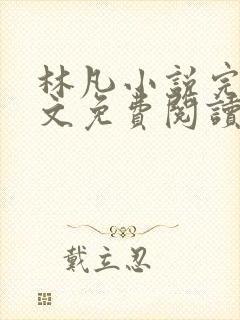 林凡小説完
文免費閱讀
戴立忍